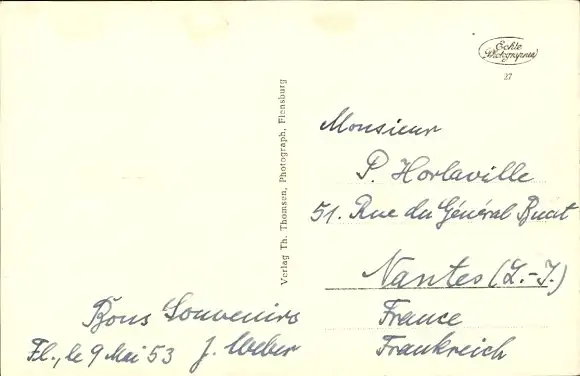 Echte
Photographie
27
Verlag Th. Thomsen, Photograph, Flensburg
Monsieur
P. Horlaville
51. Rue du Général Buat
Nantes (L.-I.)
France
Frankreich
Bons Souvenirs
Fl., le 9 Mai 53 J. Weber